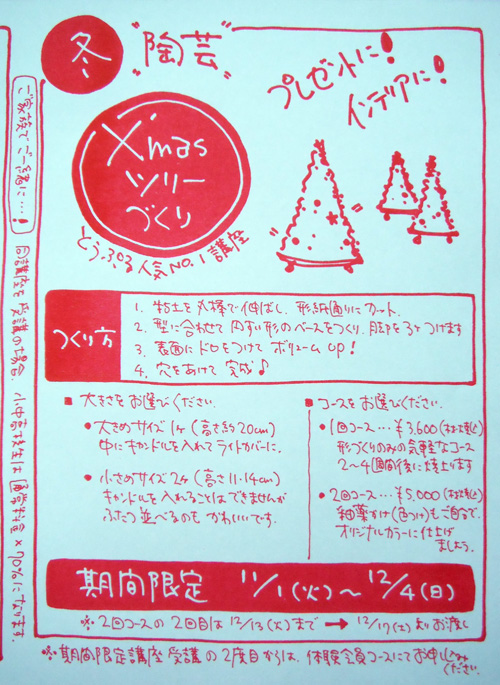 冬
"陶芸"
プレゼントに!
インテリアに!
X'mas
ツリー
づくり
とうふる人気NO.1講座
ご家族でご一緒に…!
同講座を受講の場合、小中高校生は通常料金×70%になります。
つくり方
1. 粘土を丸棒で伸ばし、形紙通りにカット.
2. 型に合わせて円すい形のベースをつくり、脚を3ヶつけます
3. 表面にドロをつけてボリュームUP!
4. 穴をあけて完成♪
■ 大きさをお選びください.
● 大きめサイズ1ヶ(高さ約20cm)
中にキャンドルを入れてライトカバーに.
● 小さめサイズ2ヶ(高さ11・14cm)
キャンドルを入れることはできませんが
ふたつ並べるのもかわいいです.
■ コースをお選びください.
● 1回コース…¥3,600(お土込)
形づくりのみの気軽なコース
2〜4週間後に焼上ります
● 2回コース…¥5,000(お土込)
釉薬がけ(色つけ)もご自分で.
オリジナルカラーに仕上げ
ましょう.
期間限定 11/1(火)〜12/4(日)
※2回コースの2回目は12/13(火)まで → 12/17(土)よりお渡し
※期間限定講座受講の2度目からは、体験会員コースにてお申し込み
ください.